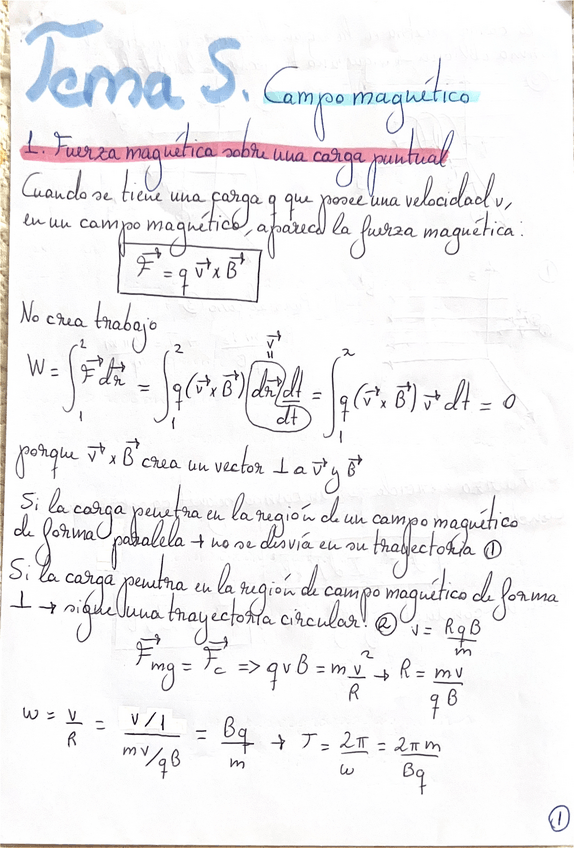 Tema 5. Campo magnético
1. Fuerza magnética sobre una carga puntual
Cuando se tiene una carga q que posee una velocidad v,
en un campo magnético, aparece la fuerza magnética:
F⃗ = q v⃗ x B⃗
No crea trabajo
W = ∫₁² F⃗ dr⃗ = ∫₁² q (v⃗ x B⃗) dr⃗/dt dt = ∫₁² q (v⃗ x B⃗) v⃗ dt = 0
v⃗ =
porque v⃗ x B⃗ crea un vector ⊥ a v⃗ y B⃗
Si la carga penetra en la región de un campo magnético
de forma paralela → no se desvía en su trayectoria ①
Si la carga penetra en la región de campo magnético de forma
⊥ → sigue una trayectoria circular. ② v = RqB/m
F⃗mg = F⃗c => q v B = m v²/R → R = mv/qB
w = v/R = (v/1)/(mv/qB) = Bq/m → T = 2π/w = 2πm/Bq
①